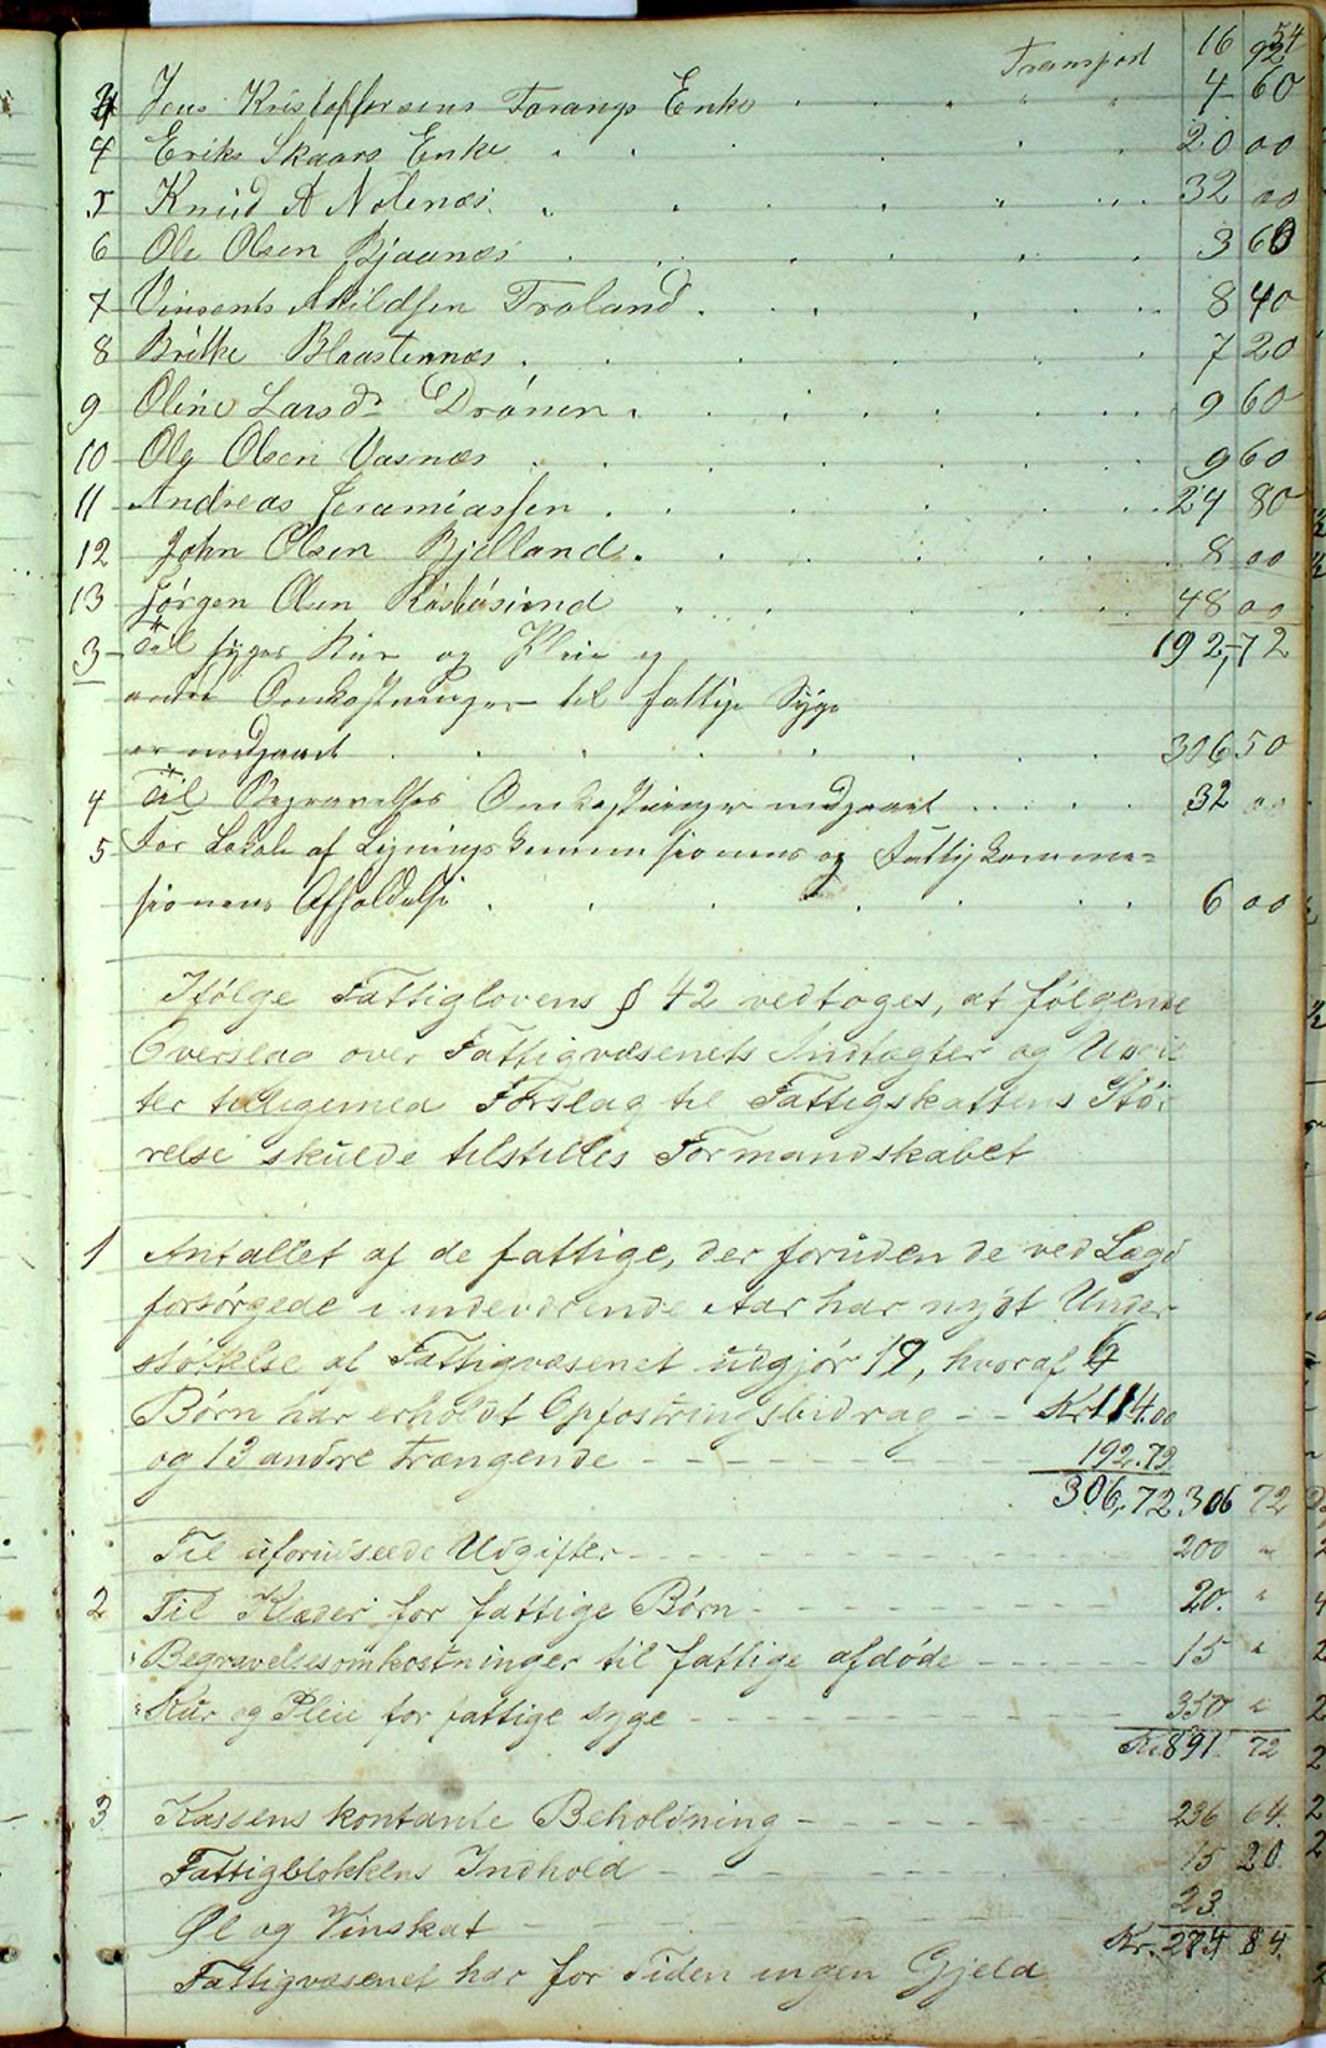 54
Transport 16 92
4 Jens Kristoffersens Tarangs Enke 4 60
4 Eriks Skaars Enke 20 00
5 Knud A Nolenæs 32 00
6 Ole Olsen Bjaanæs 3 60
7 Vinsents Askildsen Troland 8 40
8 Brithe Blaastennæs 7 20
9 Oline Larsdr Drönen 9 60
10 Ole Olsen Vasnæs 9 60
11 Andreas Jeramiassen 24 80
12 John Olsen Bjelland 8 00
13 Jörgen Olsen Rösbösund 48 00
3 Til syges Kur og Pleie og 192,72
andre Omkostninger til fattige Syge
er medgaaet 306 50
4 Til Begravelses Omkostninger medgaaet 32 00
5 For Lokale af Ligningskommisionens og Fattigkomme=
sionens Afholdelse 6 00
Ifölge Fattiglovens § 42 vedtoges, at fölgende
Overslag over Fattigvæsenets Indtægter og Udgif
ter tilligemed Forslag til Fattigskattens Stör
relse skulde tilstilles Formandskabet
1 Antallet af de fattige, der foruden de ved Lægd
forsörgede i indeværende Aar har nydt Under
stöttelse af Fattigvæsenet udgjör 17, hvoraf 4
Börn har erholdt Opfostringsbidrag - - Kr 114.00
og 13 andre Trængende - - - 192.72
306,72 306 72
Til uforudseede Udgifter - - - 200 "
2 Til Klæder for fattige Börn - - - 20. "
" Begravelsesomkostninger til fattige afdöde - - - 15 "
" Kur og Pleie for fattige syge - - - 350 "
Kr. 891. 72
3 Kassens kontante Beholdning - - - 236 64.
Fattigblokkens Indhold - - - 15 20.
Øl og Vinskat - - - 23.
Kr. 274 84.
Fattigvæsenet har for Tiden ingen Gjeld